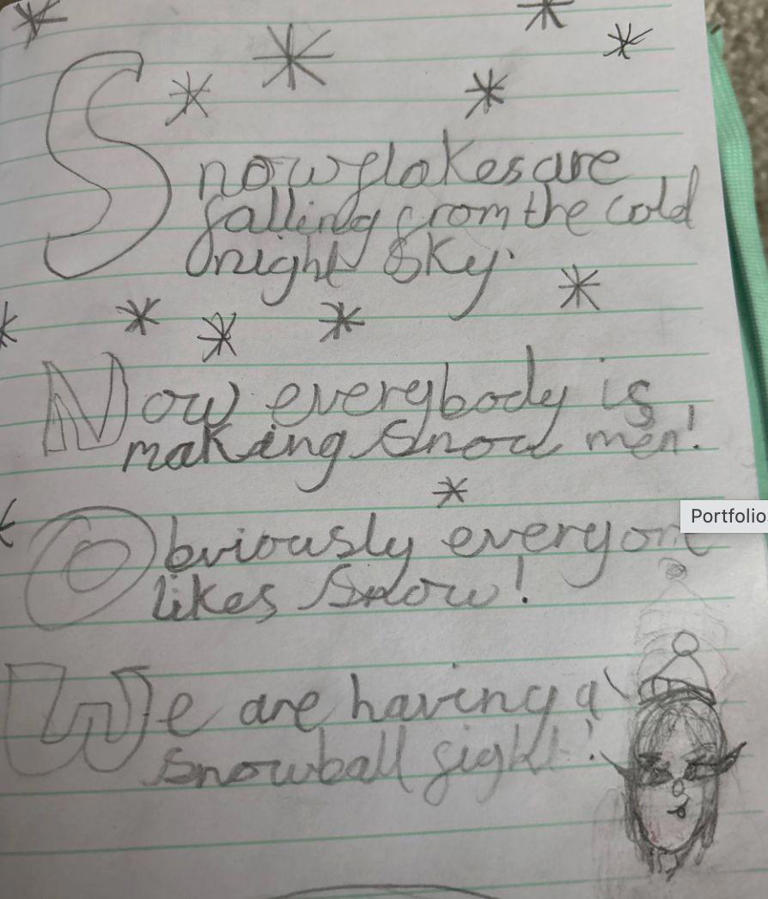 Snowflakes are
falling from the cold
night sky.
Now everybody is
making snow men!
Obviously everyone
likes snow!
Portfolio
We are having a
snowball fight!